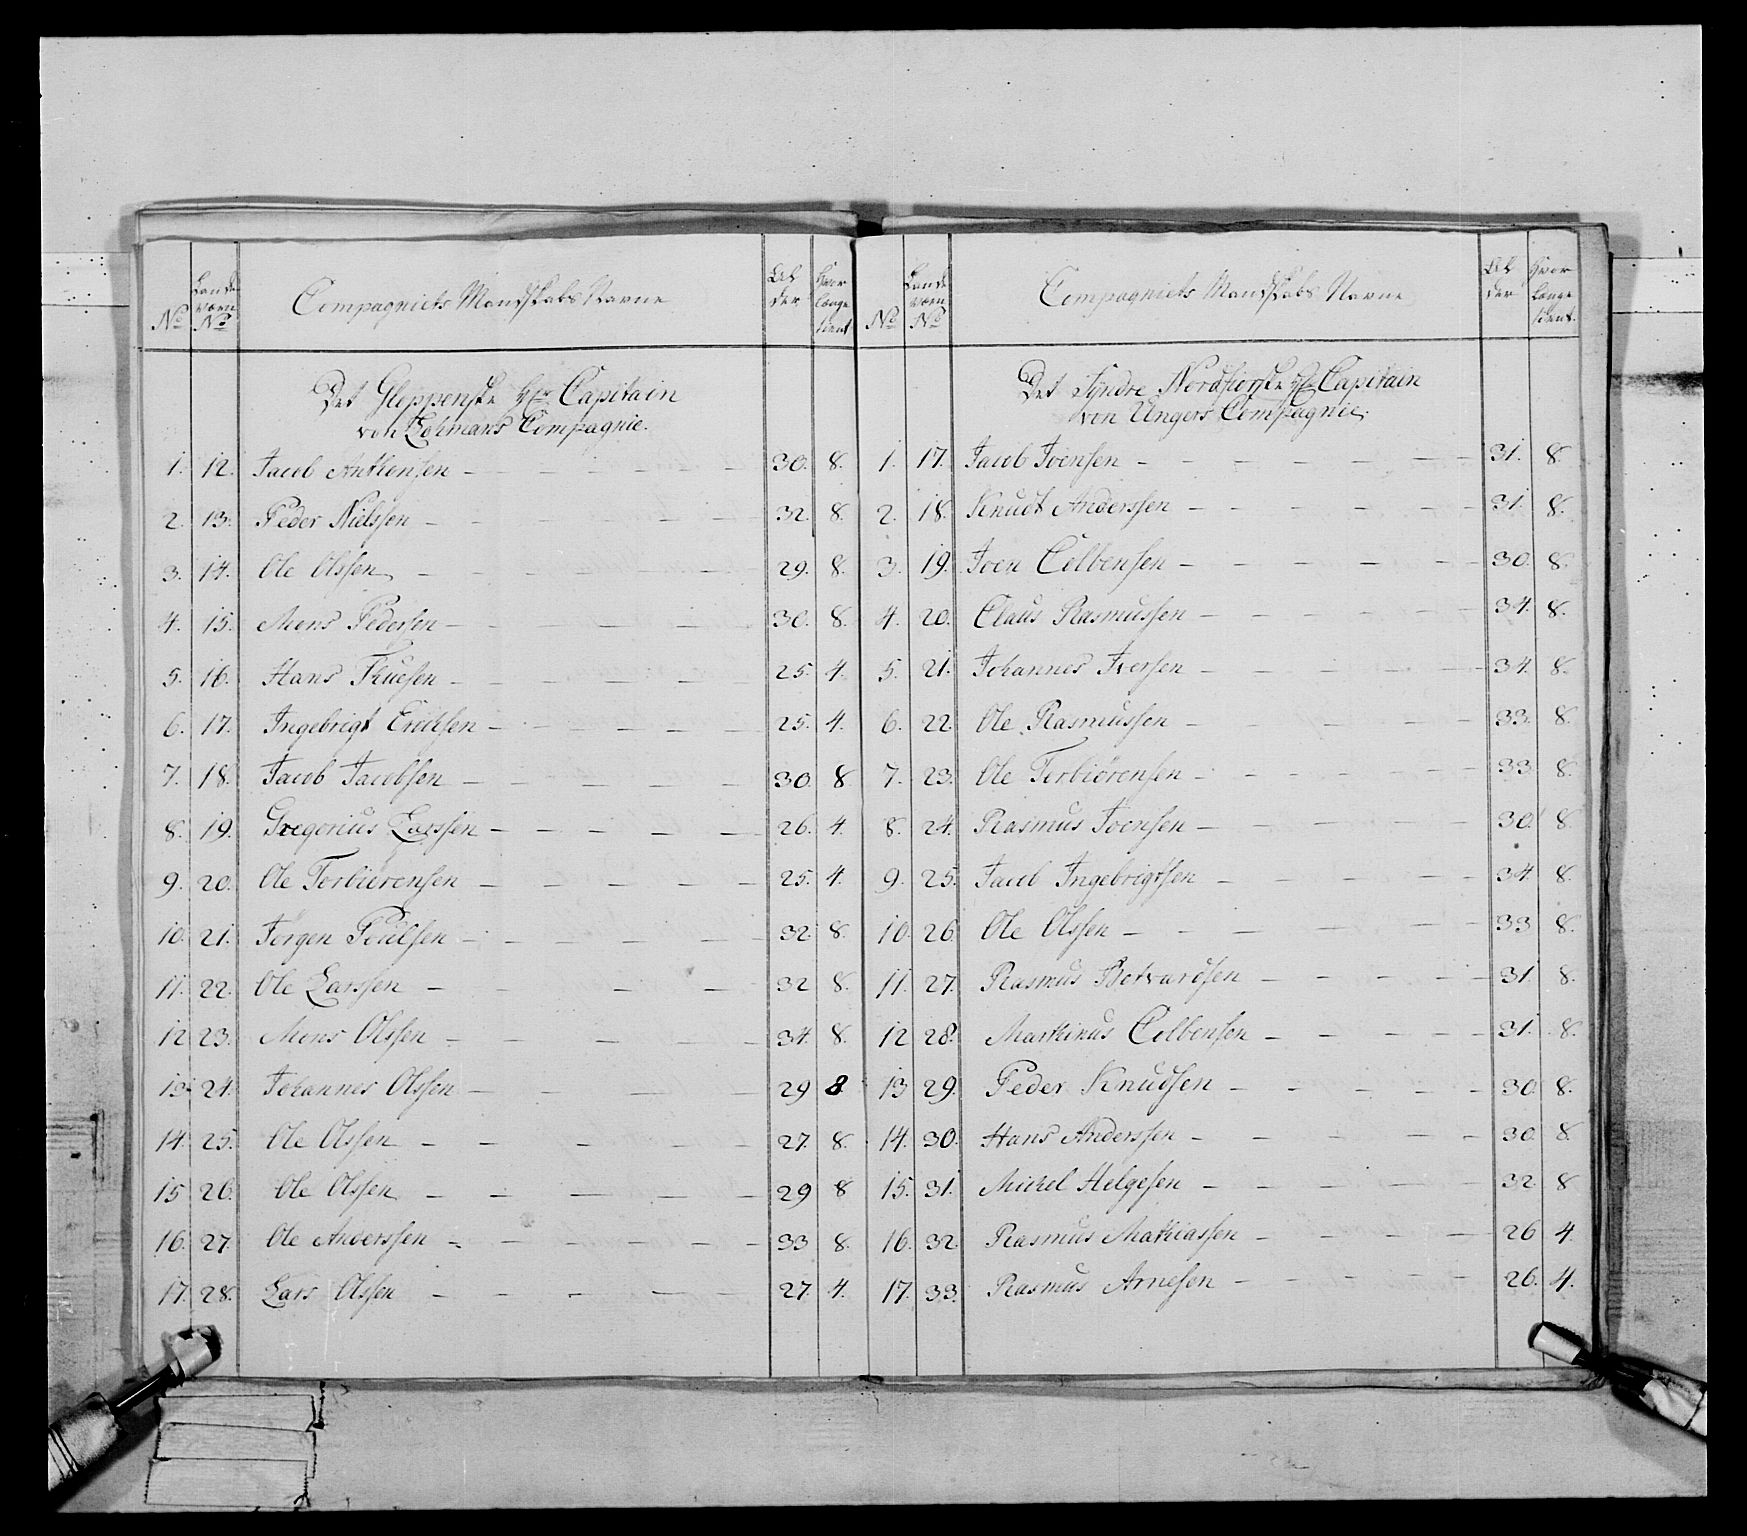 No
Lande
værn
No
Compagniets Mandskabs Navne
Al
der
Hvor
længe
tient
Det Gloppenske Hr Capitain
von Lohmans Compagnie.
1. 12. Jacob Anthensen 30. 8.
2. 13. Peder Nielssen 32. 8.
3. 14. Ole Olssen 29. 8.
4. 15. Mons Pedersen 30. 8.
5. 16. Hans Thuesen 25. 4.
6. 17. Ingebrigt Erichsen 25. 4.
7. 18. Jacob Jacobsen 30. 8
8. 19. Gregorius Larssen 26. 4.
9. 20. Ole Torbiörensen 25. 4.
10. 21. Jörgen Poulsen 32. 8.
11. 22. Ole Larssen 32 8.
12 23. Mons Olssen 34. 8.
13. 24. Johannes Olssen 29 8
14. 25. Ole Olssen 27. 8.
15 26. Ole Olssen 29 8
16. 27. Ole Anderssen 33 8.
17. 28. Lars Olssen 27. 4.
No
Lande
værn
No
Compagniets Mandskabs Navne
Al
der
Hvor
længe
tient.
Det Syndre Nordfiorske Hr Capitain
von Ungers Compagnie.
1. 17. Jacob Joensen 31. 8.
2. 18. Knudt Anderssen 31. 8.
3. 19. Joen Colbensen 30. 8.
4. 20. Claus Rasmussen 34. 8.
5. 21. Johannes Iversen 34. 8.
6. 22. Ole Rasmussen 33. 8.
7. 23. Ole Torbiörensen 33. 8.
8. 24. Rasmus Joensen 30. 8.
9. 25. Jacob Ingebrigtsen 34. 8.
10. 26. Ole Olssen 33 8.
11. 27. Rasmus Botvardsen 31. 8.
12 28. Marthinus Colbensen 31. 8.
13 29. Peder Knudsen 30. 8.
14. 30. Hans Anderssen 30. 8.
15. 31. Michel Helgesen 32. 8
16. 32. Rasmus Mathiassen 26 4.
17. 33. Rasmus Arnesen 26. 4.